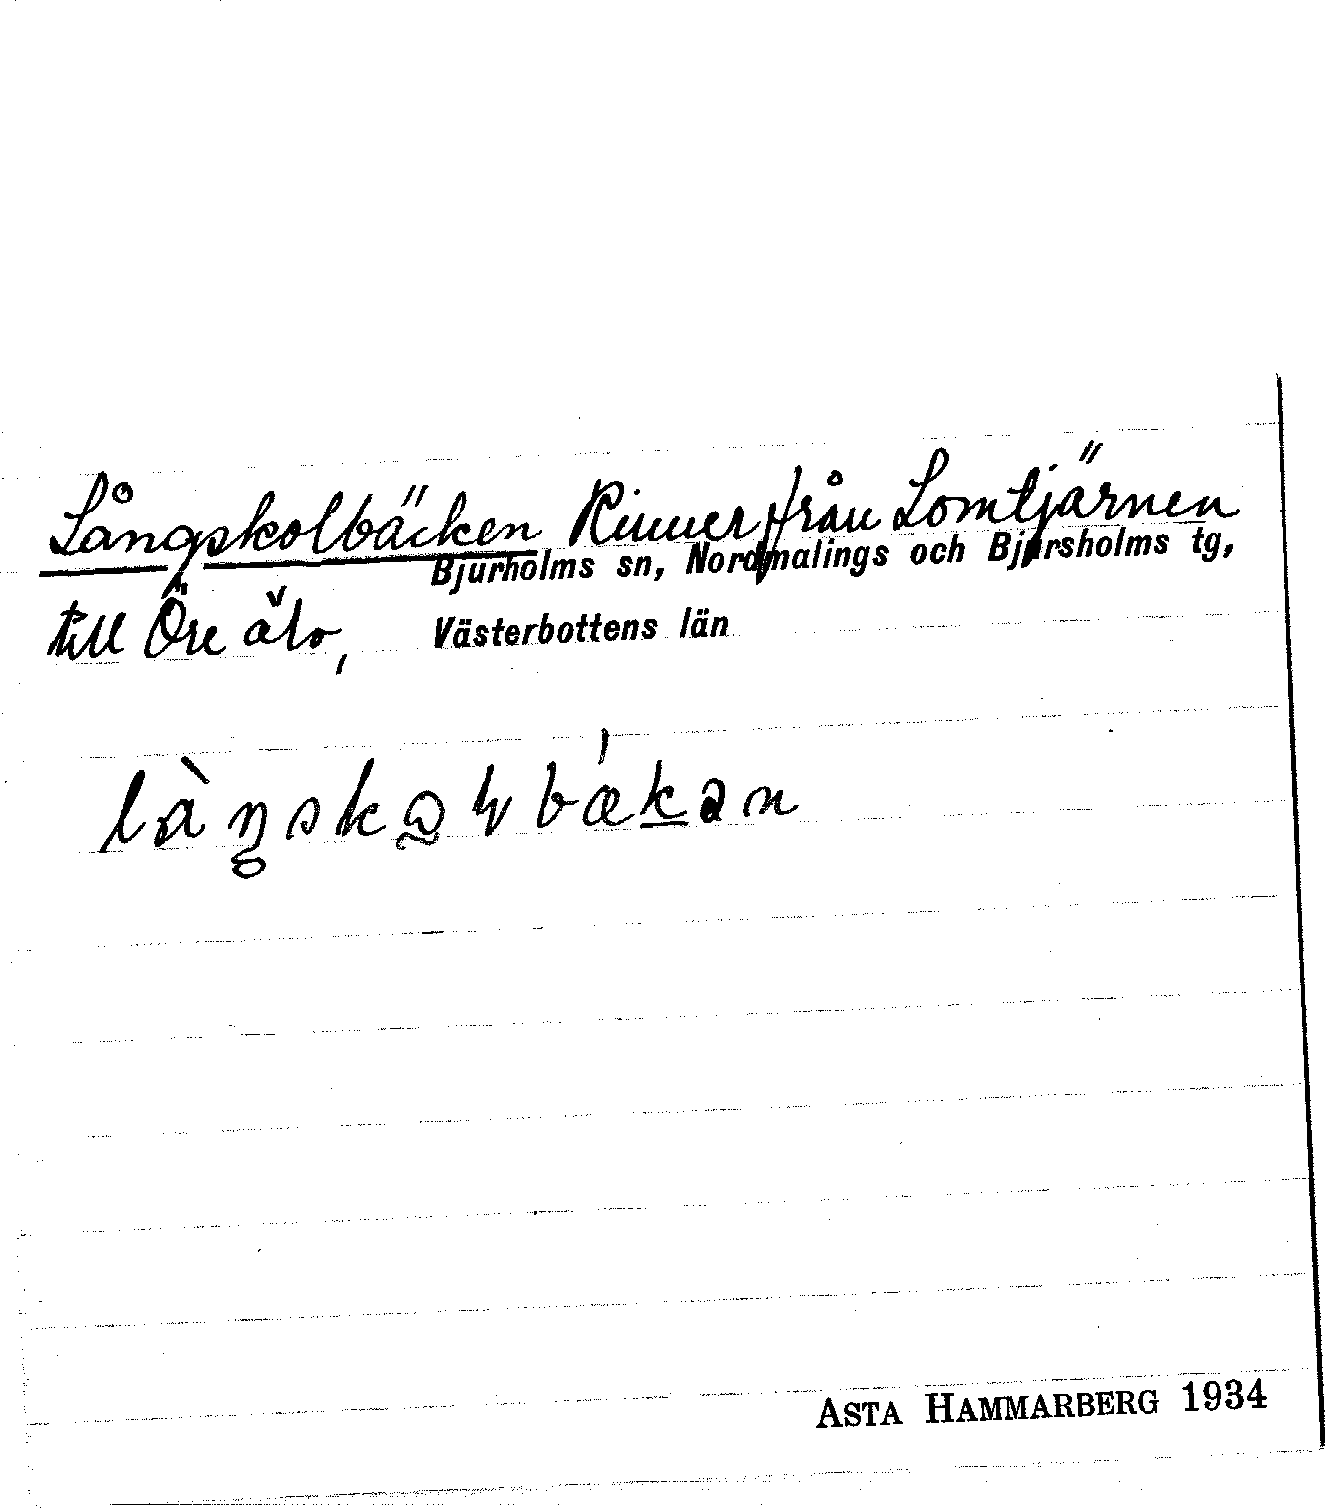 Långskolbäcken Rinner från Lomtjärnen
Bjurholms sn, Nordmalings och Bjursholms tg,
till Öre älv,
Västerbottens län
ASTA HAMMARBERG 1934